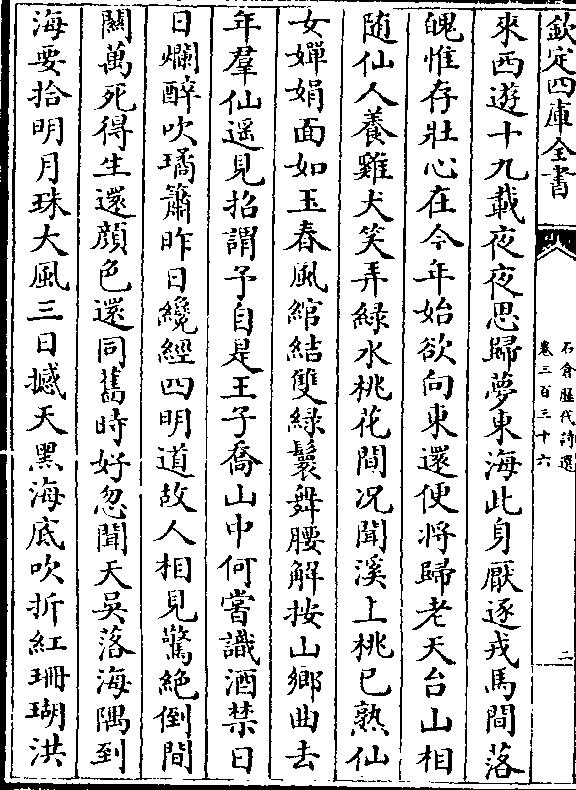 欽定四庫全書
石倉歷代詩選
卷三百三十六
二
來西遊十九載夜夜思歸夢東海此身厭逐戎馬間落
魄惟存壯心在今年始欲向東還便將歸老天台山相
随仙人養雞犬笑弄緑水桃花間况聞溪上桃已熟仙
女嬋娟面如玉春風綰結雙緑鬟舞腰解按山鄉曲去
年羣仙遥見招謂予自是王子喬山中何嘗識酒禁日
日爛醉吹璚簫昨日纔經四明道故人相見驚絶倒間
關萬死得生還顔色還同舊時好忽聞天吳落海隅到
海要拾明月珠大風三日撼天黑海底吹折紅珊瑚洪